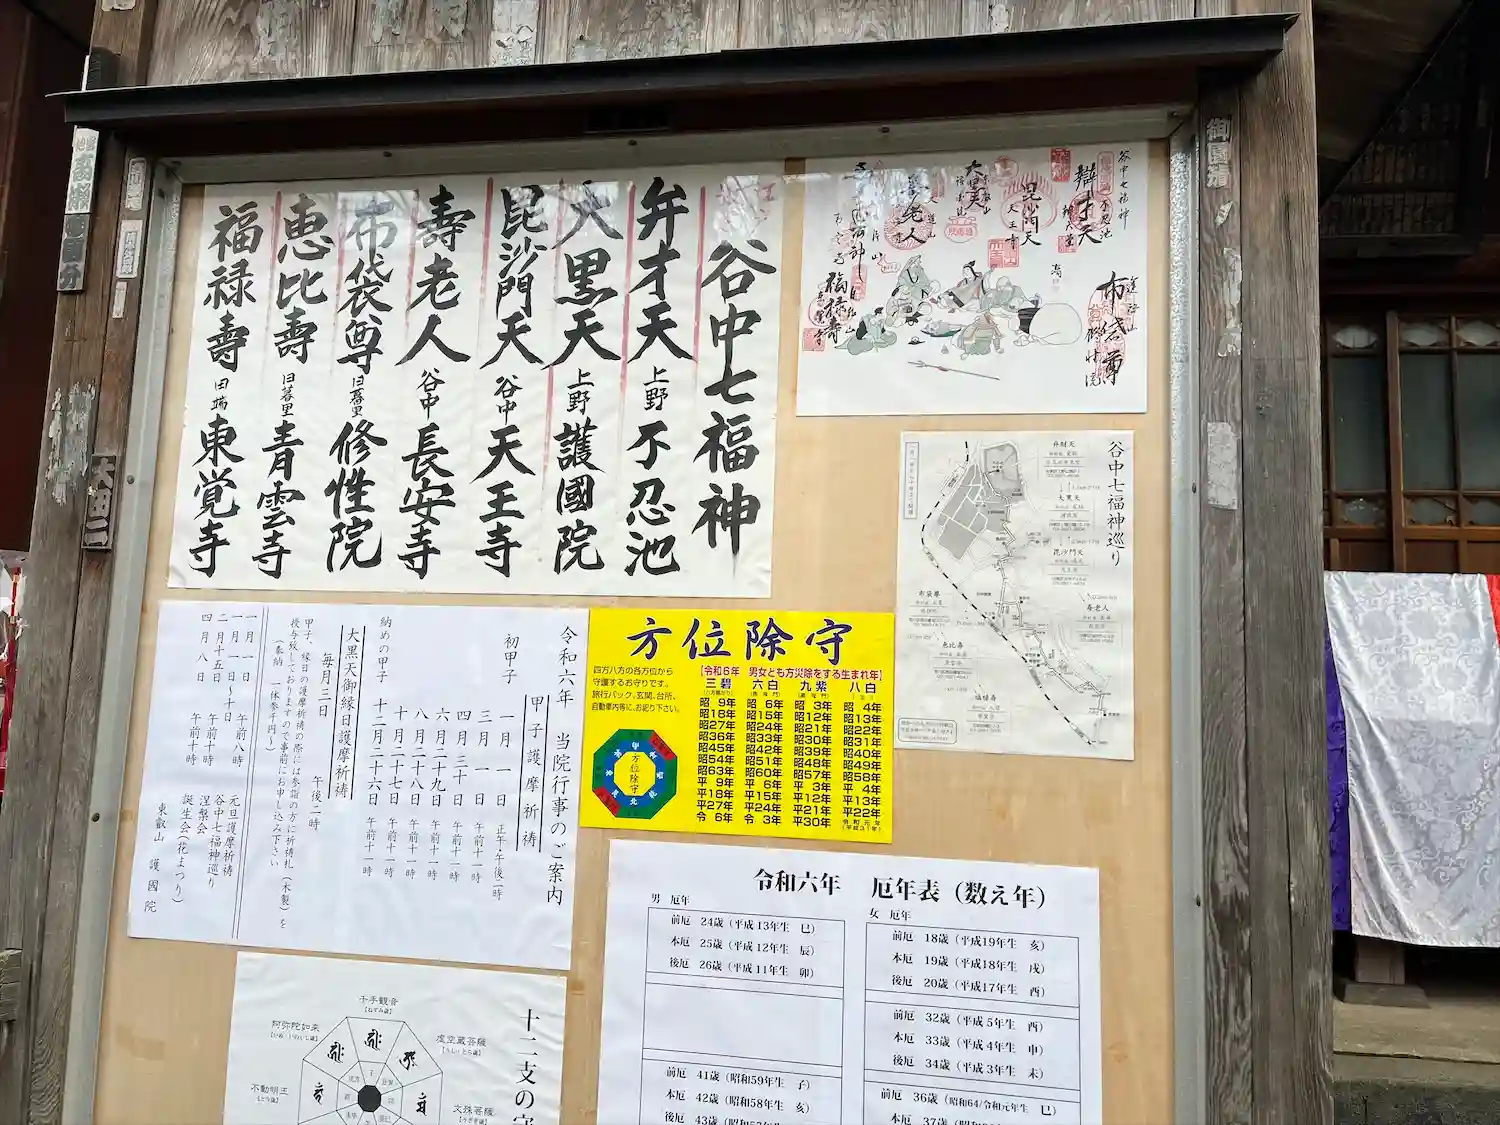 谷中七福神
弁才天 上野 不忍池
大黒天 上野 護國院
毘沙門天 谷中 天王寺
壽老人 谷中 長安寺
布袋尊 日暮里 修性院
恵比壽 日暮里 青雲寺
福禄壽 田端 東覚寺
谷中七福神
辯才天
毘沙門天
大黒天
福禄寿
布袋尊
谷中七福神巡り
弁財天
大黒天
毘沙門天
寿老人
布袋尊
恵比寿
福禄寿
令和六年 当院行事のご案内
甲子護摩祈祷
初甲子 一月一日 正午・午後一時
三月一日 午前十一時
四月三十日 午前十一時
六月二十九日 午前十一時
八月二十八日 午前十一時
十月二十七日 午前十一時
納めの甲子 十二月二十六日 午前十一時
大黒天御縁日護摩祈祷
毎月三日 午後二時
甲子、縁日の護摩祈祷の際には参詣の方に祈祷札(木製)を
授与致しておりますので事前にお申し込み下さい
(奉納 一体参千円〜)
一月一日 午前八時 元旦護摩祈祷
一月一日〜十日 谷中七福神巡り
二月十五日 午前十時 涅槃会
四月八日 午前十時 誕生会(花まつり)
東叡山 護國院
方位除守
四方八方の各方位から
守護するお守りです。
旅行バック、玄関、台所、
自動車内等に、お祀り下さい。
【令和6年 男女とも方災除をする生まれ年】
三碧 六白 九紫 八白
昭9年 昭6年 昭3年 昭4年
昭18年 昭15年 昭12年 昭13年
昭27年 昭24年 昭21年 昭22年
昭36年 昭33年 昭30年 昭31年
昭45年 昭42年 昭39年 昭40年
昭54年 昭51年 昭48年 昭49年
昭63年 昭60年 昭57年 昭58年
平9年 平6年 平3年 平4年
平18年 平15年 平12年 平13年
平27年 平24年 平21年 平22年
令6年 令3年 平30年 令和元年
(平成31年)
方位除守
令和六年 厄年表(数え年)
男 厄年
前厄 24歳(平成13年生 巳)
本厄 25歳(平成12年生 辰)
後厄 26歳(平成11年生 卯)
前厄 41歳(昭和59年生 子)
本厄 42歳(昭和58年生 亥)
後厄 43歳
女 厄年
前厄 18歳(平成19年生 亥)
本厄 19歳(平成18年生 戌)
後厄 20歳(平成17年生 酉)
前厄 32歳(平成5年生 酉)
本厄 33歳(平成4年生 申)
後厄 34歳(平成3年生 未)
前厄 36歳(昭和64/令和元年生 巳)
本厄 37歳
十二支の守
千手観音
【ねずみ歳】
虚空蔵菩薩
文殊菩薩
【うさぎ歳】
阿弥陀如来
不動明王
【とり歳】